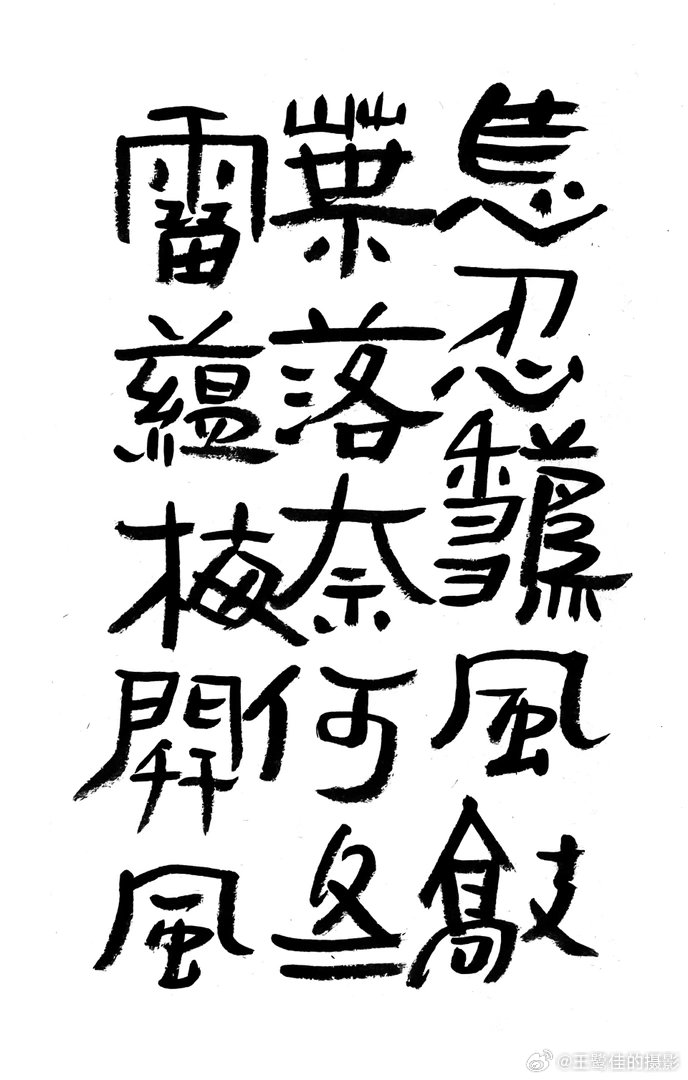 怎忍風敲
葉落奈何冬
蘊梅開風
@王佳的摄影